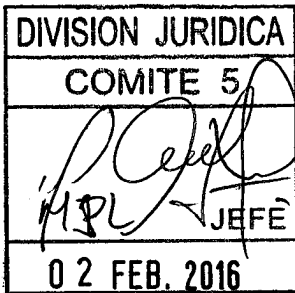 DIVISION JURIDICA
COMITE 5
MPL
JEFE
02 FEB. 2016